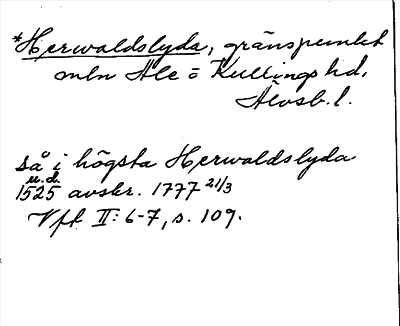 *Herwaldslyda, gränspunkt
mln Ale o Kullings hd,
Älvsb. l.
så i högsta Herwaldslyda
u.d.
1525 avskr. 1777 21/3
Vft II: 6-7, s. 109.